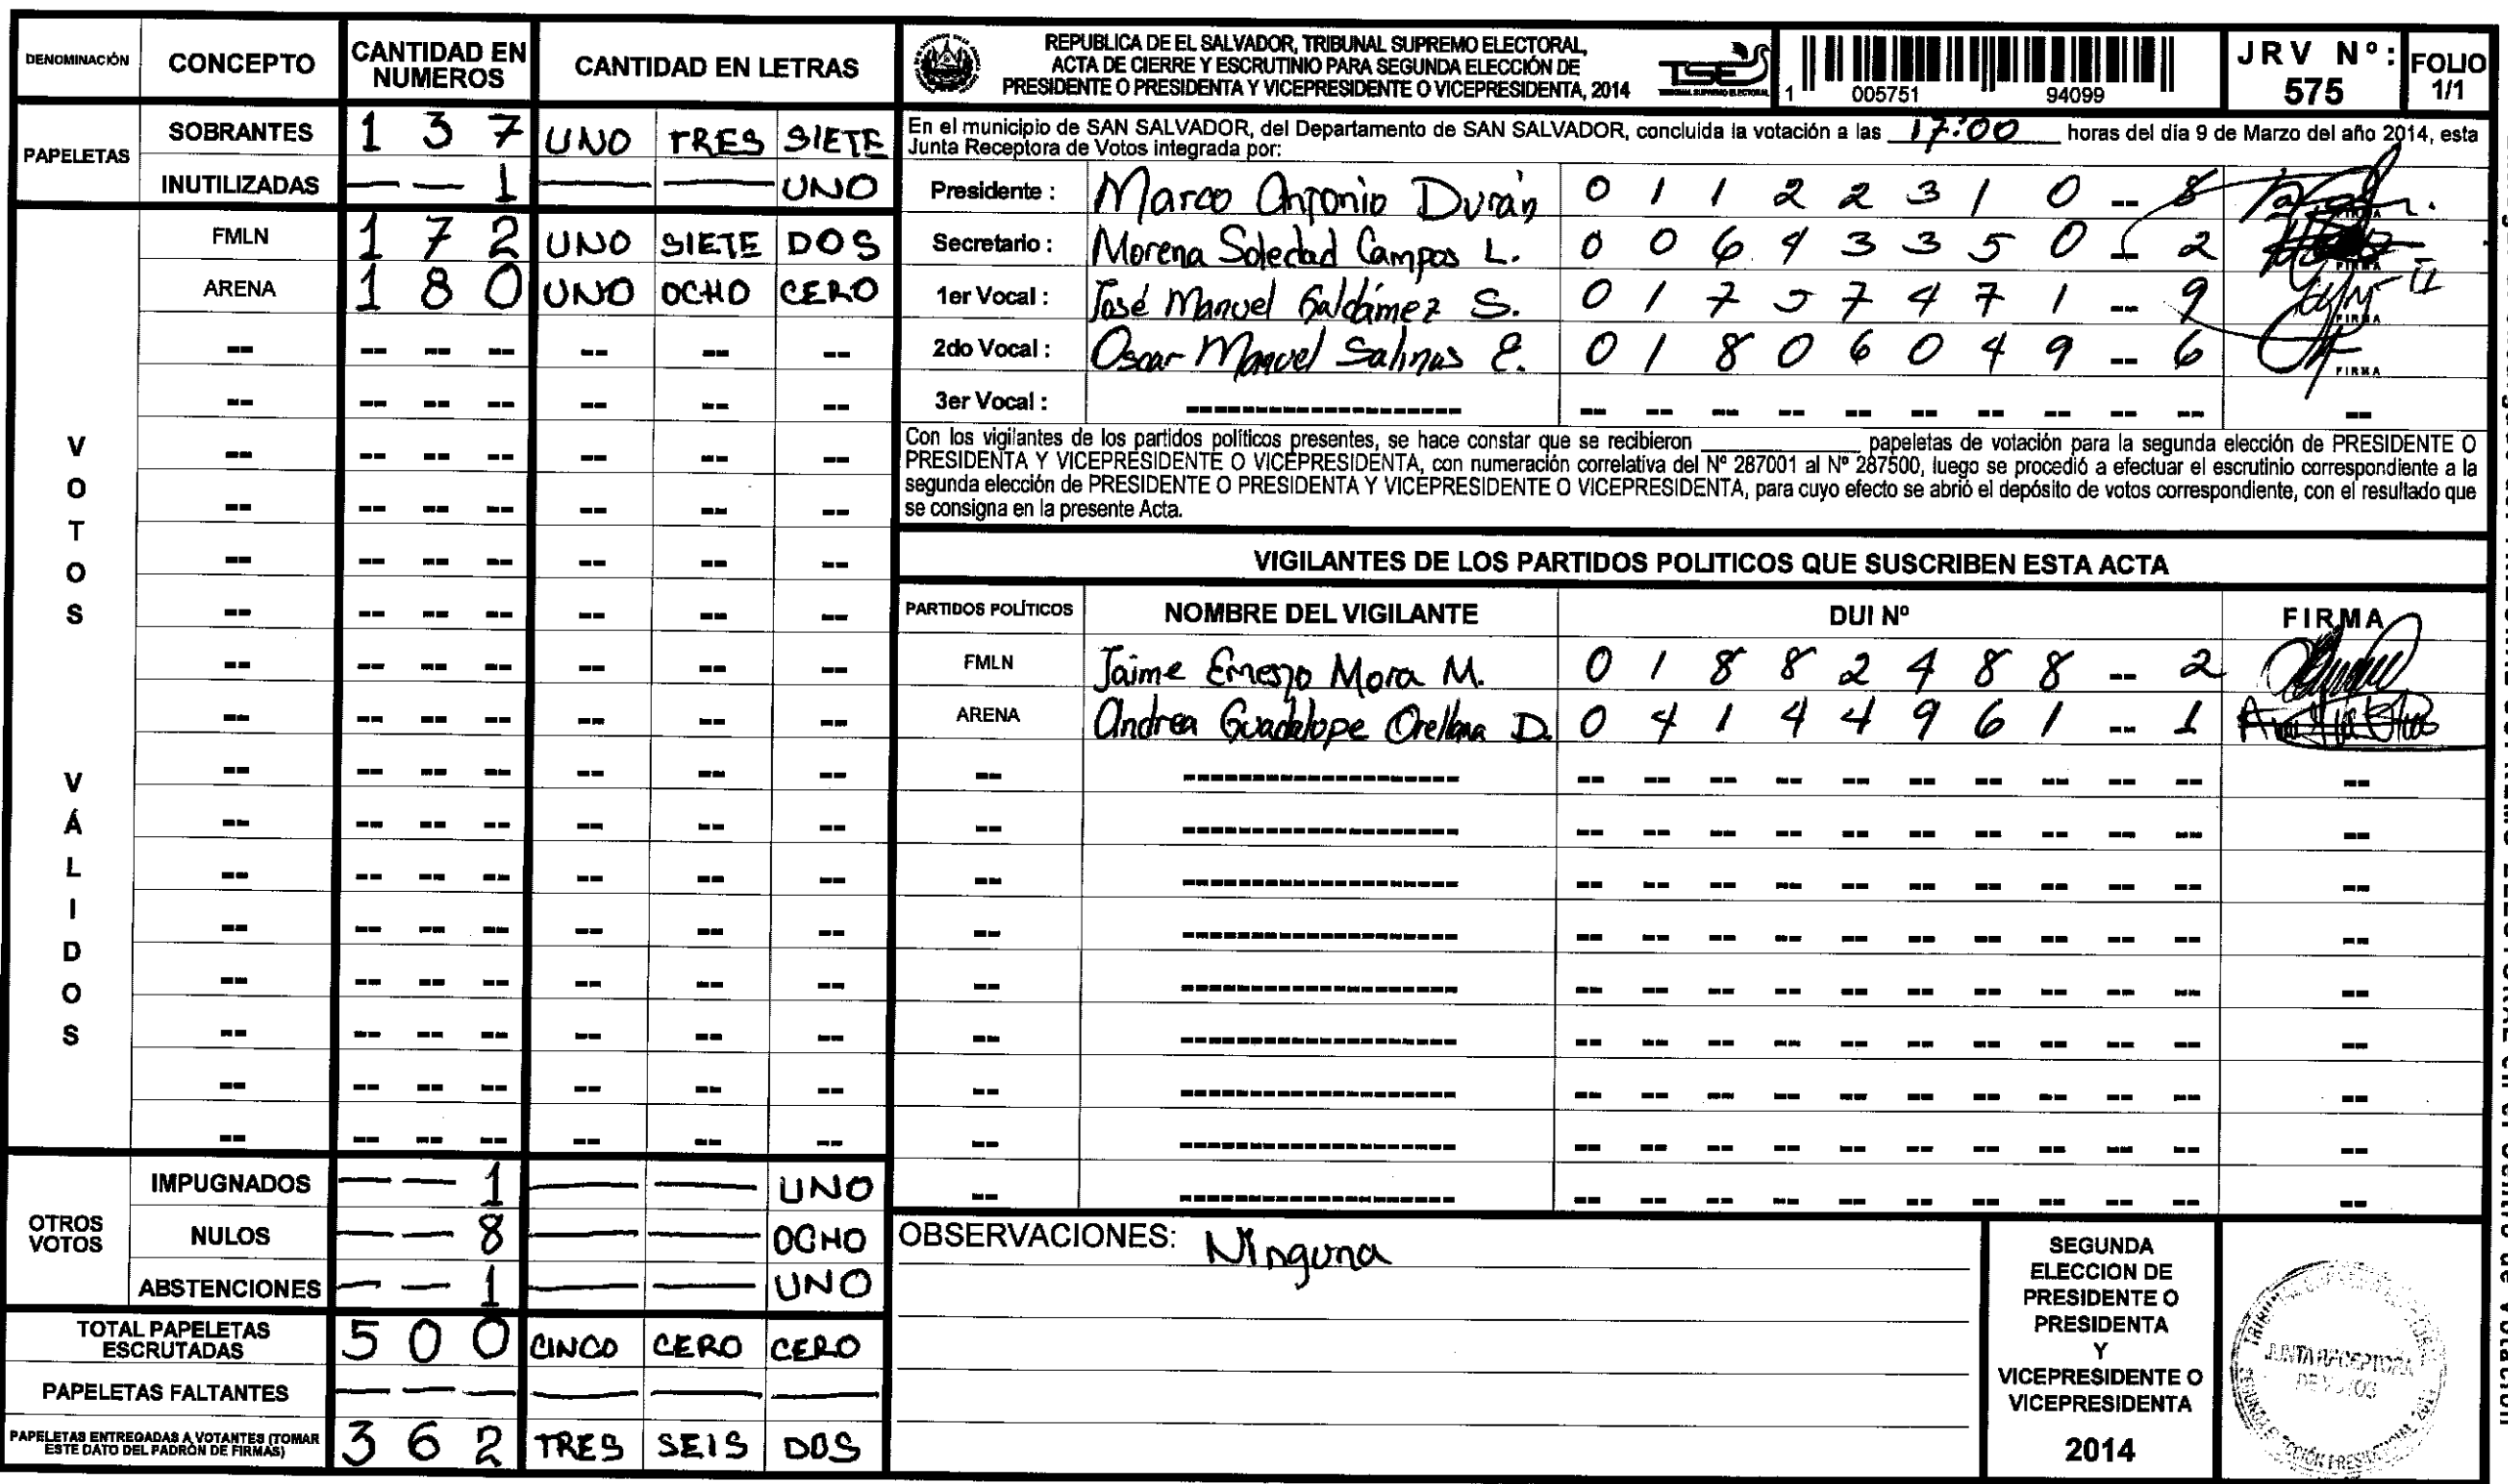 DENOMINACIÓN CONCEPTO CANTIDAD EN NUMEROS CANTIDAD EN LETRAS
PAPELETAS
SOBRANTES 1 3 7 UNO TRES SIETE
INUTILIZADAS — — 1 — — UNO
VOTOS VÁLIDOS
FMLN 1 7 2 UNO SIETE DOS
ARENA 1 8 0 UNO OCHO CERO
OTROS VOTOS
IMPUGNADOS — — 1 — — UNO
NULOS — — 8 — — OCHO
ABSTENCIONES — — 1 — — UNO
TOTAL PAPELETAS ESCRUTADAS 5 0 0 CINCO CERO CERO
PAPELETAS FALTANTES — — — — — —
PAPELETAS ENTREGADAS A VOTANTES (TOMAR ESTE DATO DEL PADRÓN DE FIRMAS) 3 6 2 TRES SEIS DOS
REPUBLICA DE EL SALVADOR, TRIBUNAL SUPREMO ELECTORAL,
ACTA DE CIERRE Y ESCRUTINIO PARA SEGUNDA ELECCIÓN DE
PRESIDENTE O PRESIDENTA Y VICEPRESIDENTE O VICEPRESIDENTA, 2014
TSE
1 005751 94099
JRV Nº: 575
FOLIO 1/1
En el municipio de SAN SALVADOR, del Departamento de SAN SALVADOR, concluida la votación a las 17:00 horas del día 9 de Marzo del año 2014, esta
Junta Receptora de Votos integrada por:
Presidente : Marco Antonio Durán 0 1 1 2 2 3 1 0 -- 8
Secretario : Morena Soledad Campos L. 0 0 6 4 3 3 5 0 -- 2
1er Vocal : José Manuel Galdámez S. 0 1 7 5 7 4 7 1 -- 9
2do Vocal : Oscar Manuel Salinas E. 0 1 8 0 6 0 4 9 -- 6
FIRMA
3er Vocal :
Con los vigilantes de los partidos políticos presentes, se hace constar que se recibieron ____ papeletas de votación para la segunda elección de PRESIDENTE O
PRESIDENTA Y VICEPRESIDENTE O VICEPRESIDENTA, con numeración correlativa del Nº 287001 al Nº 287500, luego se procedió a efectuar el escrutinio correspondiente a la
segunda elección de PRESIDENTE O PRESIDENTA Y VICEPRESIDENTE O VICEPRESIDENTA, para cuyo efecto se abrió el depósito de votos correspondiente, con el resultado que
se consigna en la presente Acta.
VIGILANTES DE LOS PARTIDOS POLITICOS QUE SUSCRIBEN ESTA ACTA
PARTIDOS POLÍTICOS NOMBRE DEL VIGILANTE DUI Nº FIRMA
FMLN Jaime Ernesto Mora M. 0 1 8 8 2 4 8 8 -- 2
ARENA Andrea Guadalope Orellana D. 0 4 1 4 4 9 6 1 -- 1
OBSERVACIONES: Ninguna
SEGUNDA
ELECCION DE
PRESIDENTE O
PRESIDENTA
Y
VICEPRESIDENTE O
VICEPRESIDENTA
2014
JUNTA RECEPTORA
DE VOTOS